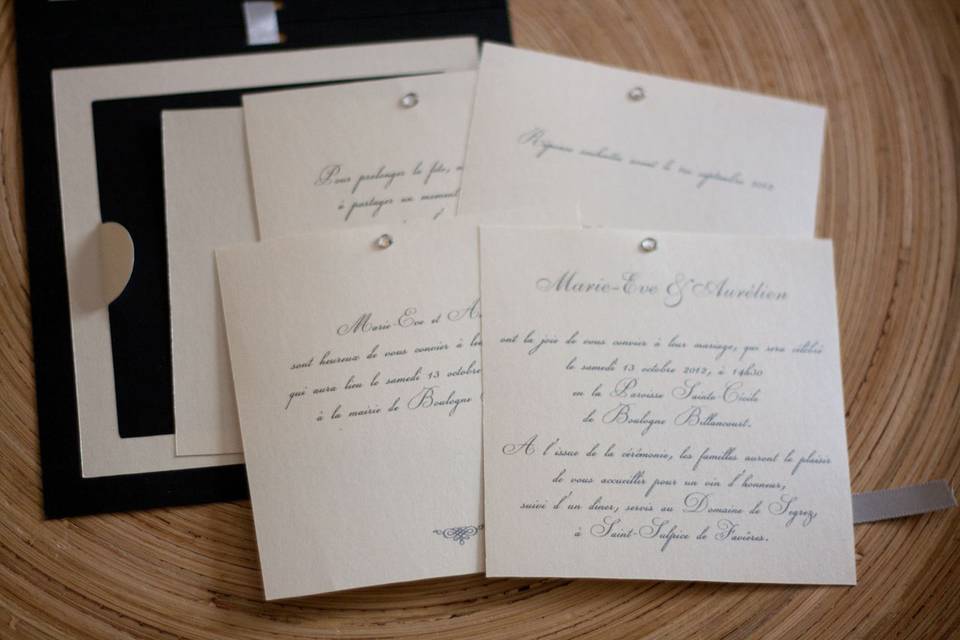 Réponse souhaitée avant le 1er septembre 2012
Pour prolonger la fête,
à partager un moment
Marie-Eve et
sont heureux de vous convier à
qui aura lieu le samedi 13 octobre
à la mairie de Boulogne
Marie-Eve & Aurélien
ont la joie de vous convier à leur mariage, qui sera célébré
le samedi 13 octobre 2012, à 14h30
en la Paroisse Sainte-Cécile
de Boulogne Billancourt.
A l'issue de la cérémonie, les familles auront le plaisir
de vous accueillir pour un vin d'honneur,
suivi d'un dîner, servis au Domaine de Segrez,
à Saint-Sulpice de Favières.